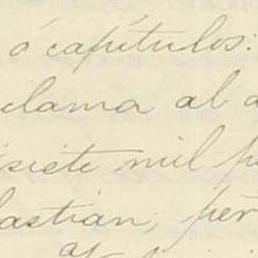 ó capítulos:
clama al a
isiete mil p
bastián, pér